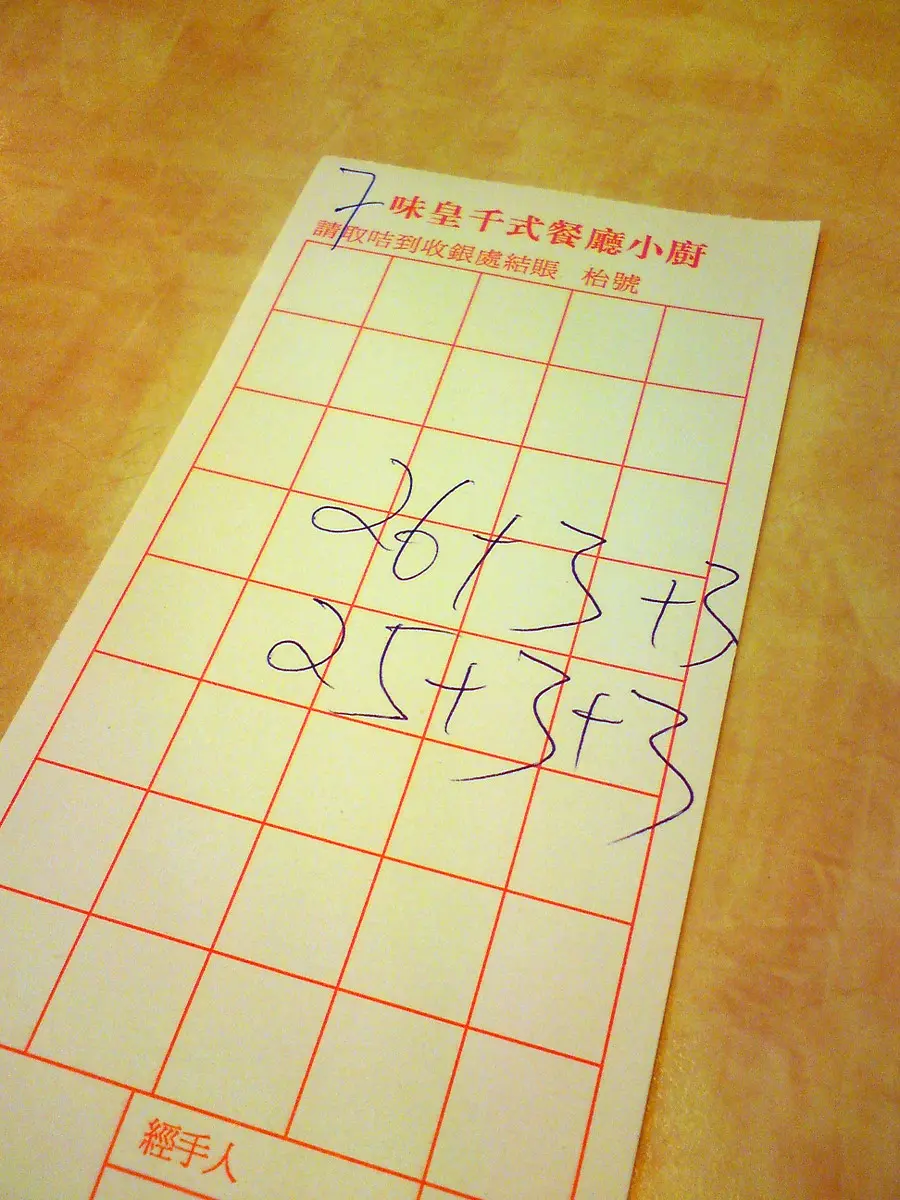 7 味皇千式餐廳小廚
請取咭到收銀處結賬 枱號
26+3+3
25+3+3
經手人